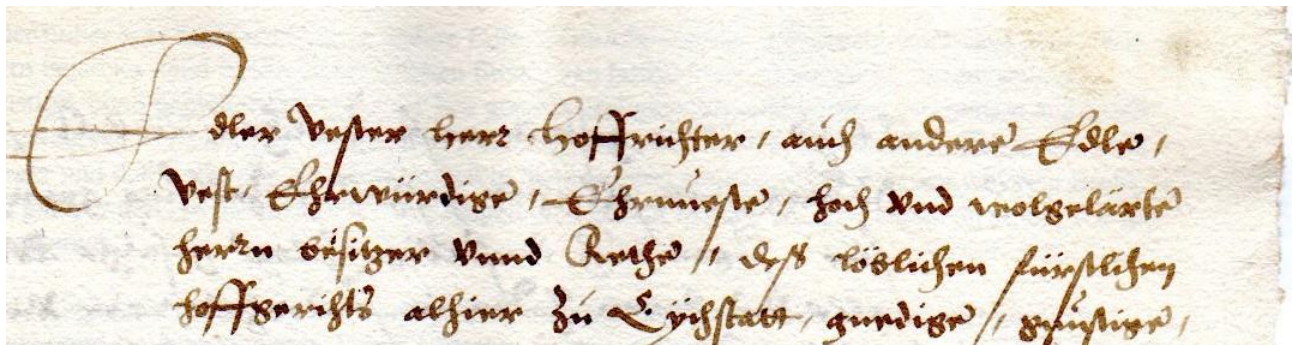 Edler Vester herr Hoffrichter, auch andere Edle,
Vest, Ehrwürdige, Ehrnueste, hoch vnd wolgelärte
herrn beisitzer vnnd Räthe, deß löblichen fürstlichen
hoffgerichts alhier zu Eychstatt, gnedige, günstige,